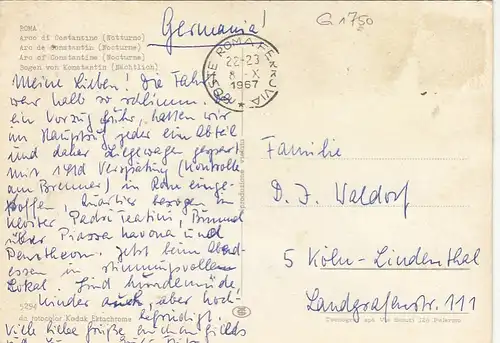 Germania!
G1750
ROMA
Arco di Costantino (Notturno)
Arc de Constantin (Nocturne)
Arc of Constantine (Nocturne)
Bogen von Konstantin (Nächtlich)
POSTE ROMA FERROVIA
22-23
8-X
1967
Meine Lieben! Die Fahrt
war halb so schlimm. Da
ein Vorzug fuhr, hatten wir
im Hauptzug jeder ein Abteil
und daher Liegewagen gespart
mit 1 Std Verspätung (Kontrolle
am Brenner) in Rom einge-
troffen, Quartier bezogen im
Kloster Padri Teatini, Bummel
über Piazza Navona und
Pantheon. Jetzt beim Abend-
essen in stimmungsvollem
Lokal. Sind hundemüde
Kinder auch, aber hoch-
befriedigt.
Viele liebe Grüße
Familie
D. J. Waldorf
5 Köln-Lindenthal
Landgrafenstr. 111
5254
da fotocolor Kodak Ektachrome